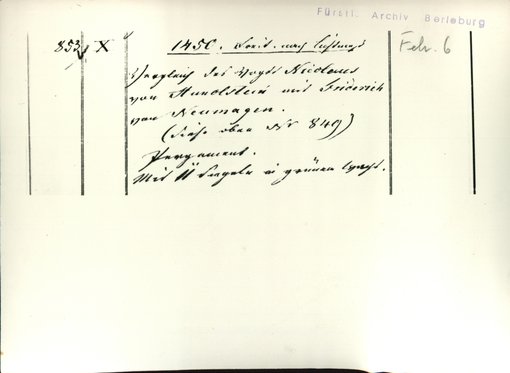 Fürstl. Archiv Berleburg
853 X 1450. Freit. nach Lichtmeß Febr. 6
Vergleich des Vogts Nicolaus
von Hunolstein mit Friderich
von Neumagen.
(Siehe oben Nr 849)
Pergament.
Mit 11 Siegeln in grünem Wachs.